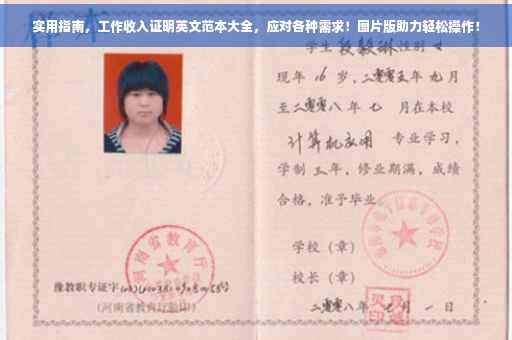 实用指南，工作收入证明英文范本大全，应对各种需求！图片版助力轻松操作！
学生段毅琳性别女
现年16岁，二零零五年九月
至二零零八年七月在本校
计算机应用 专业学习，
学制三年，修业期满，成绩
合格，准予毕业
学校（章）
校长（章）
河南省教育厅
豫教职专证字
（河南省教育厅验印）
二零零八年七月一日